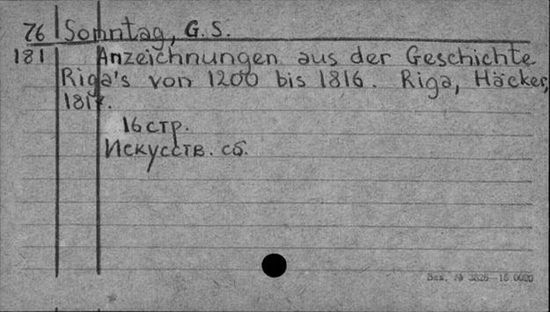 76 Sonntag, G. S.
181 Anzeichnungen aus der Geschichte
Riga's von 1200 bis 1816. Riga, Häcker,
1817.
16 стр.
Искусств. сб.